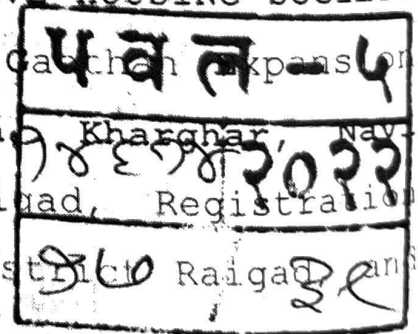 HOUSING
पवल-५
Gaothan Expansion
Kharghar, Nav
२०२२
gad, Registration
strict Raigad and
३९